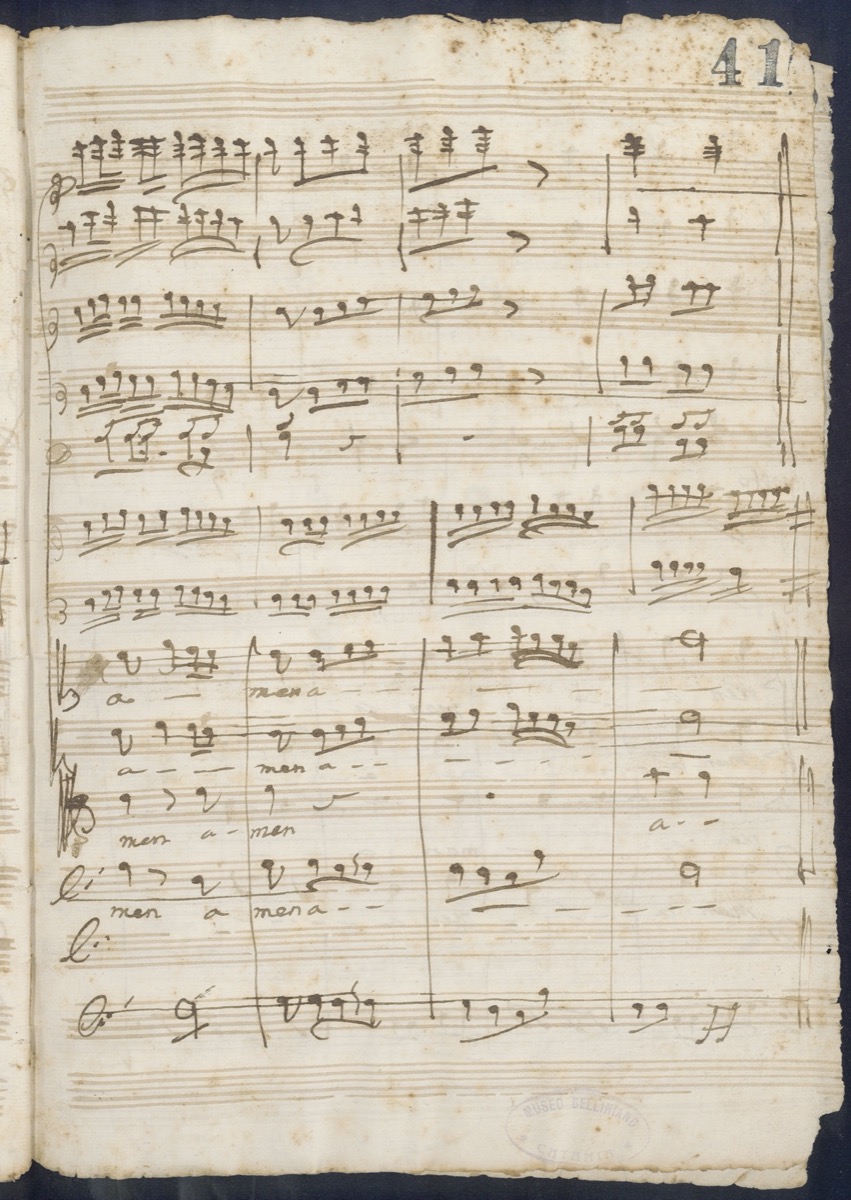 41
a — men a - - - -
a - - — men a - - -
men a - men a - -
men a men a - -
MUSEO BELLINIANO
CATANIA